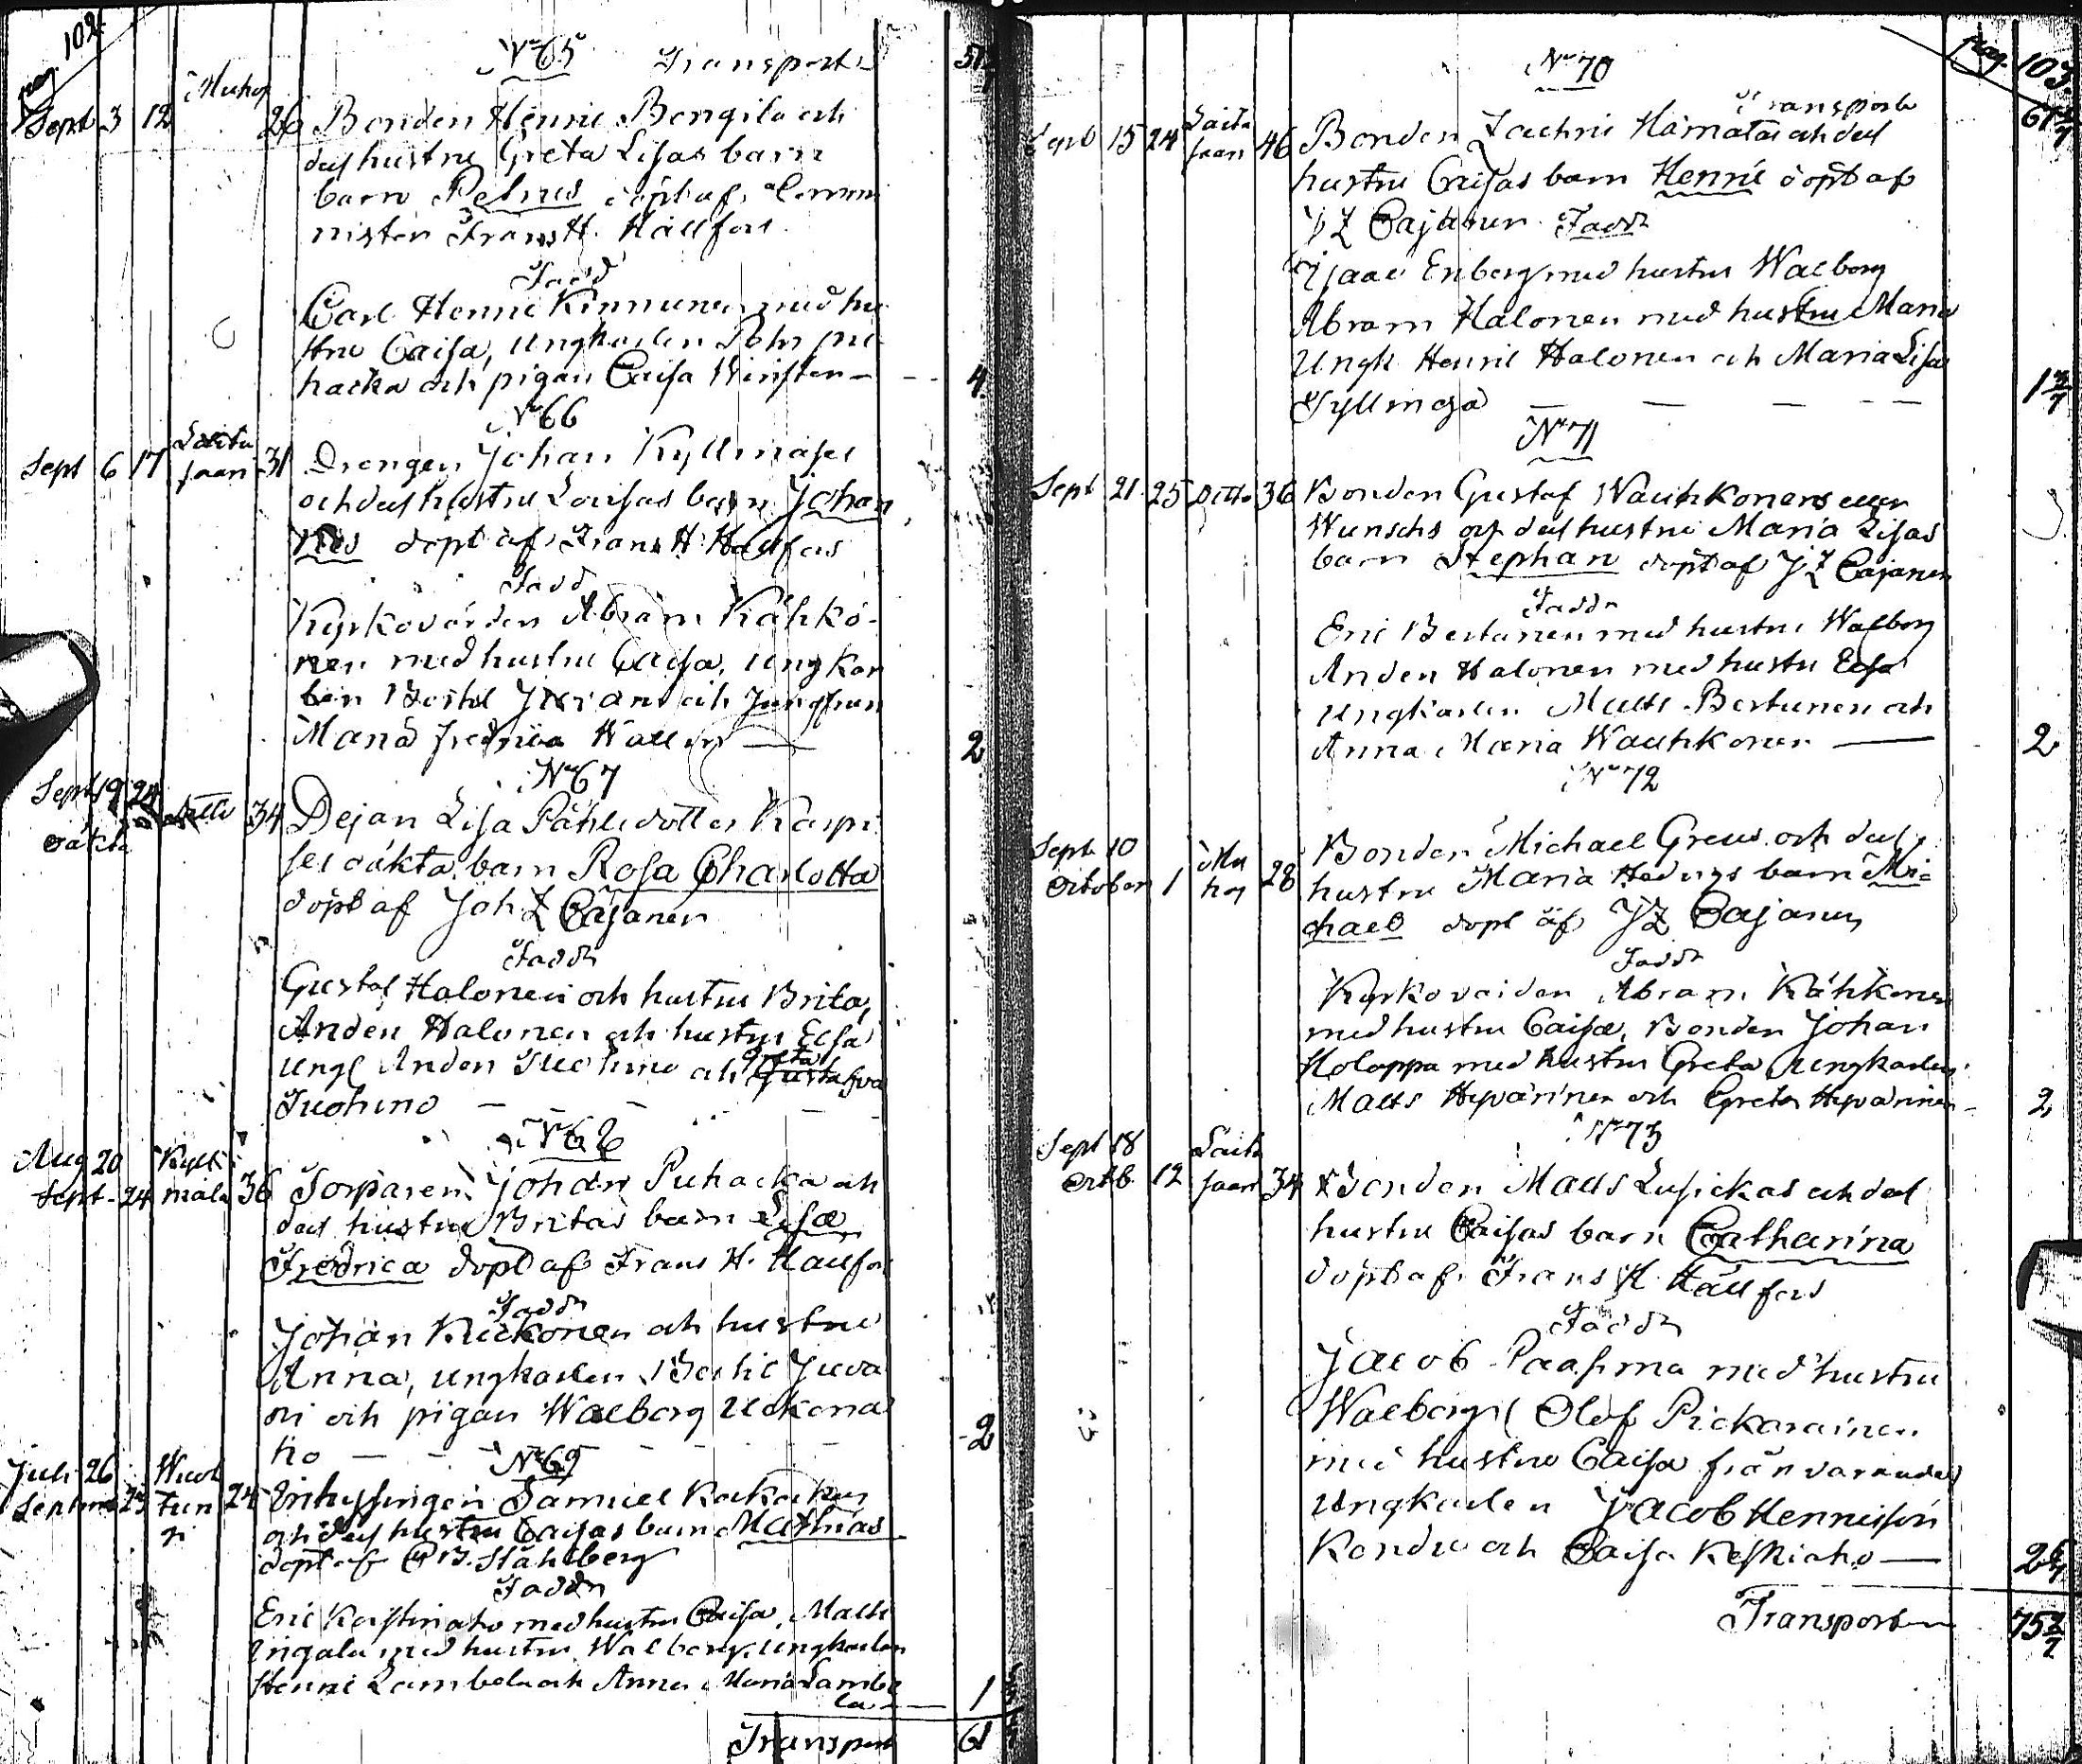 pag. 102
No 65 Transport 51
Sept 3 12 Muhos 26 Bonden Henric Bongila och
des hustru Greta Lisas barn
barn Petrus döpt af Commi
nistern Frans H. Hällfors
Fadd
Carl Henric Kinnunen med hu
stru Caisa, Ungkarlen Pehr Pu
hacka och pigan Caisa Winsten — 4
No 66
Sept 6 17 Laita saari 31 Drengen Johan Kyllmäses
och des hustru Lovisas barn Johan
nes döpt af Frans H. Hällfors
Fadd
Kyrkovärden Abram Kähkö-
nen med hustru Caisa, ungkar
len Bertel och Jungfrun
Maria Fredrica Wallen — 2
No 67
Sept 19 24 34 Dejan Lisa Påhlsdotter Karpi
oäkta ses oäkta barn Rosa Charlotta
döpt af Joh Z Cajanen
Faddr
Gustaf Halonen och hustru Brita,
Anders Halonen och hustru Elsa
Ungl Anders Tuohino och Greta
Tuohino — — —
No 68
Aug 20 Kylli
Sept 24 mälä 36 Torparen Johan Puhacka och
des hustru Britas barn Lisa
Fredrica döpt af Frans H. Hällfors
Faddr
Johan Kuckonen och hustru
Anna, ungkarlen Bertil Juva
ri och pigan Walborg Uckona
ho — — — 2
No 69
Juli 26 Wuol
Septem 25 tun 24 Inhysingen Samuel
gi och des hustru Caisas barn Mathias
döpt af P B. Ståhlberg
Faddr
Eric med hustru Caisa, Matts
Ingala med hustru Walborg, ungkarlen
Henric Lambela och Anna Maria Lambe
la — 1
Transport 61
pag. 103.
No 70
Transport 61
Sept 15 24 Laita saari 46 Bonden Zachris Hämälä och des
hustru Caisas barn Henric döpt af
J Z Cajanen Faddr
Isaac Enberg med hustru Walborg
Abram Halonen med hustru Maria
Ungk Henric Halonen och Maria Lisa
Tyllinoja — — — 1 3/7
No 71
Sept 21 25 Ditto 36 Bonden Gustaf Wauhkonens eller
Wunschs och des hustru Maria Lisas
barn Stephan döpt af J Z Cajanen
Faddr
Eric Bertunen med hustru Walborg
Anders Halonen med hustru Elsa
Ungkarlen Matts Bertunen och
Anna Maria Wauhkonen — 2
No 72
Sept 10 Mu
October 1 hos 28 Bonden Michael Greus och des
hustru Maria Hedvigs barn Mi-
chael döpt af J Z Cajanen
Faddr
Kyrkovärden Abram Kähkönen
med hustru Caisa, Bonden Johan
Holappa med hustru Greta, Ungkarlen
Matts Hyvärinen och Greta Hyvärinen — 2
No 73
Sept 18 Laita
Octb. 12 saari 34 Bonden Matts Lusickas och des
hustru Caisas barn Catharina
döpt af Frans H. Hällfors
Faddr
Jacob Paasma med hustru
Walborg, Olof Pickarainen
med hustru Caisa frånvarande
Ungkarlen Jacob Henricsson
Kondu och Caisa Keskiaho — 2 6/7
Transport 75 2/7